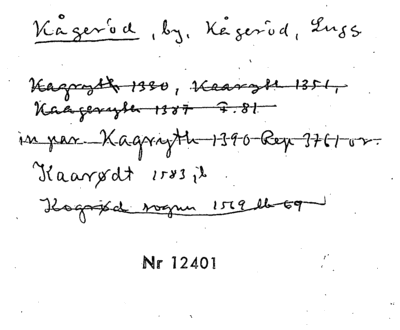 Kågeröd, by, Kågeröd, Lugg
Kagryth 1350, Kaaryth 1351,
Kaageryth 1387 F. 81
in par Kagryth 1390 Rep 3761 or.
Kaarødt 1583 jb
Kogrød sogen 1569 lb 69
Nr 12401